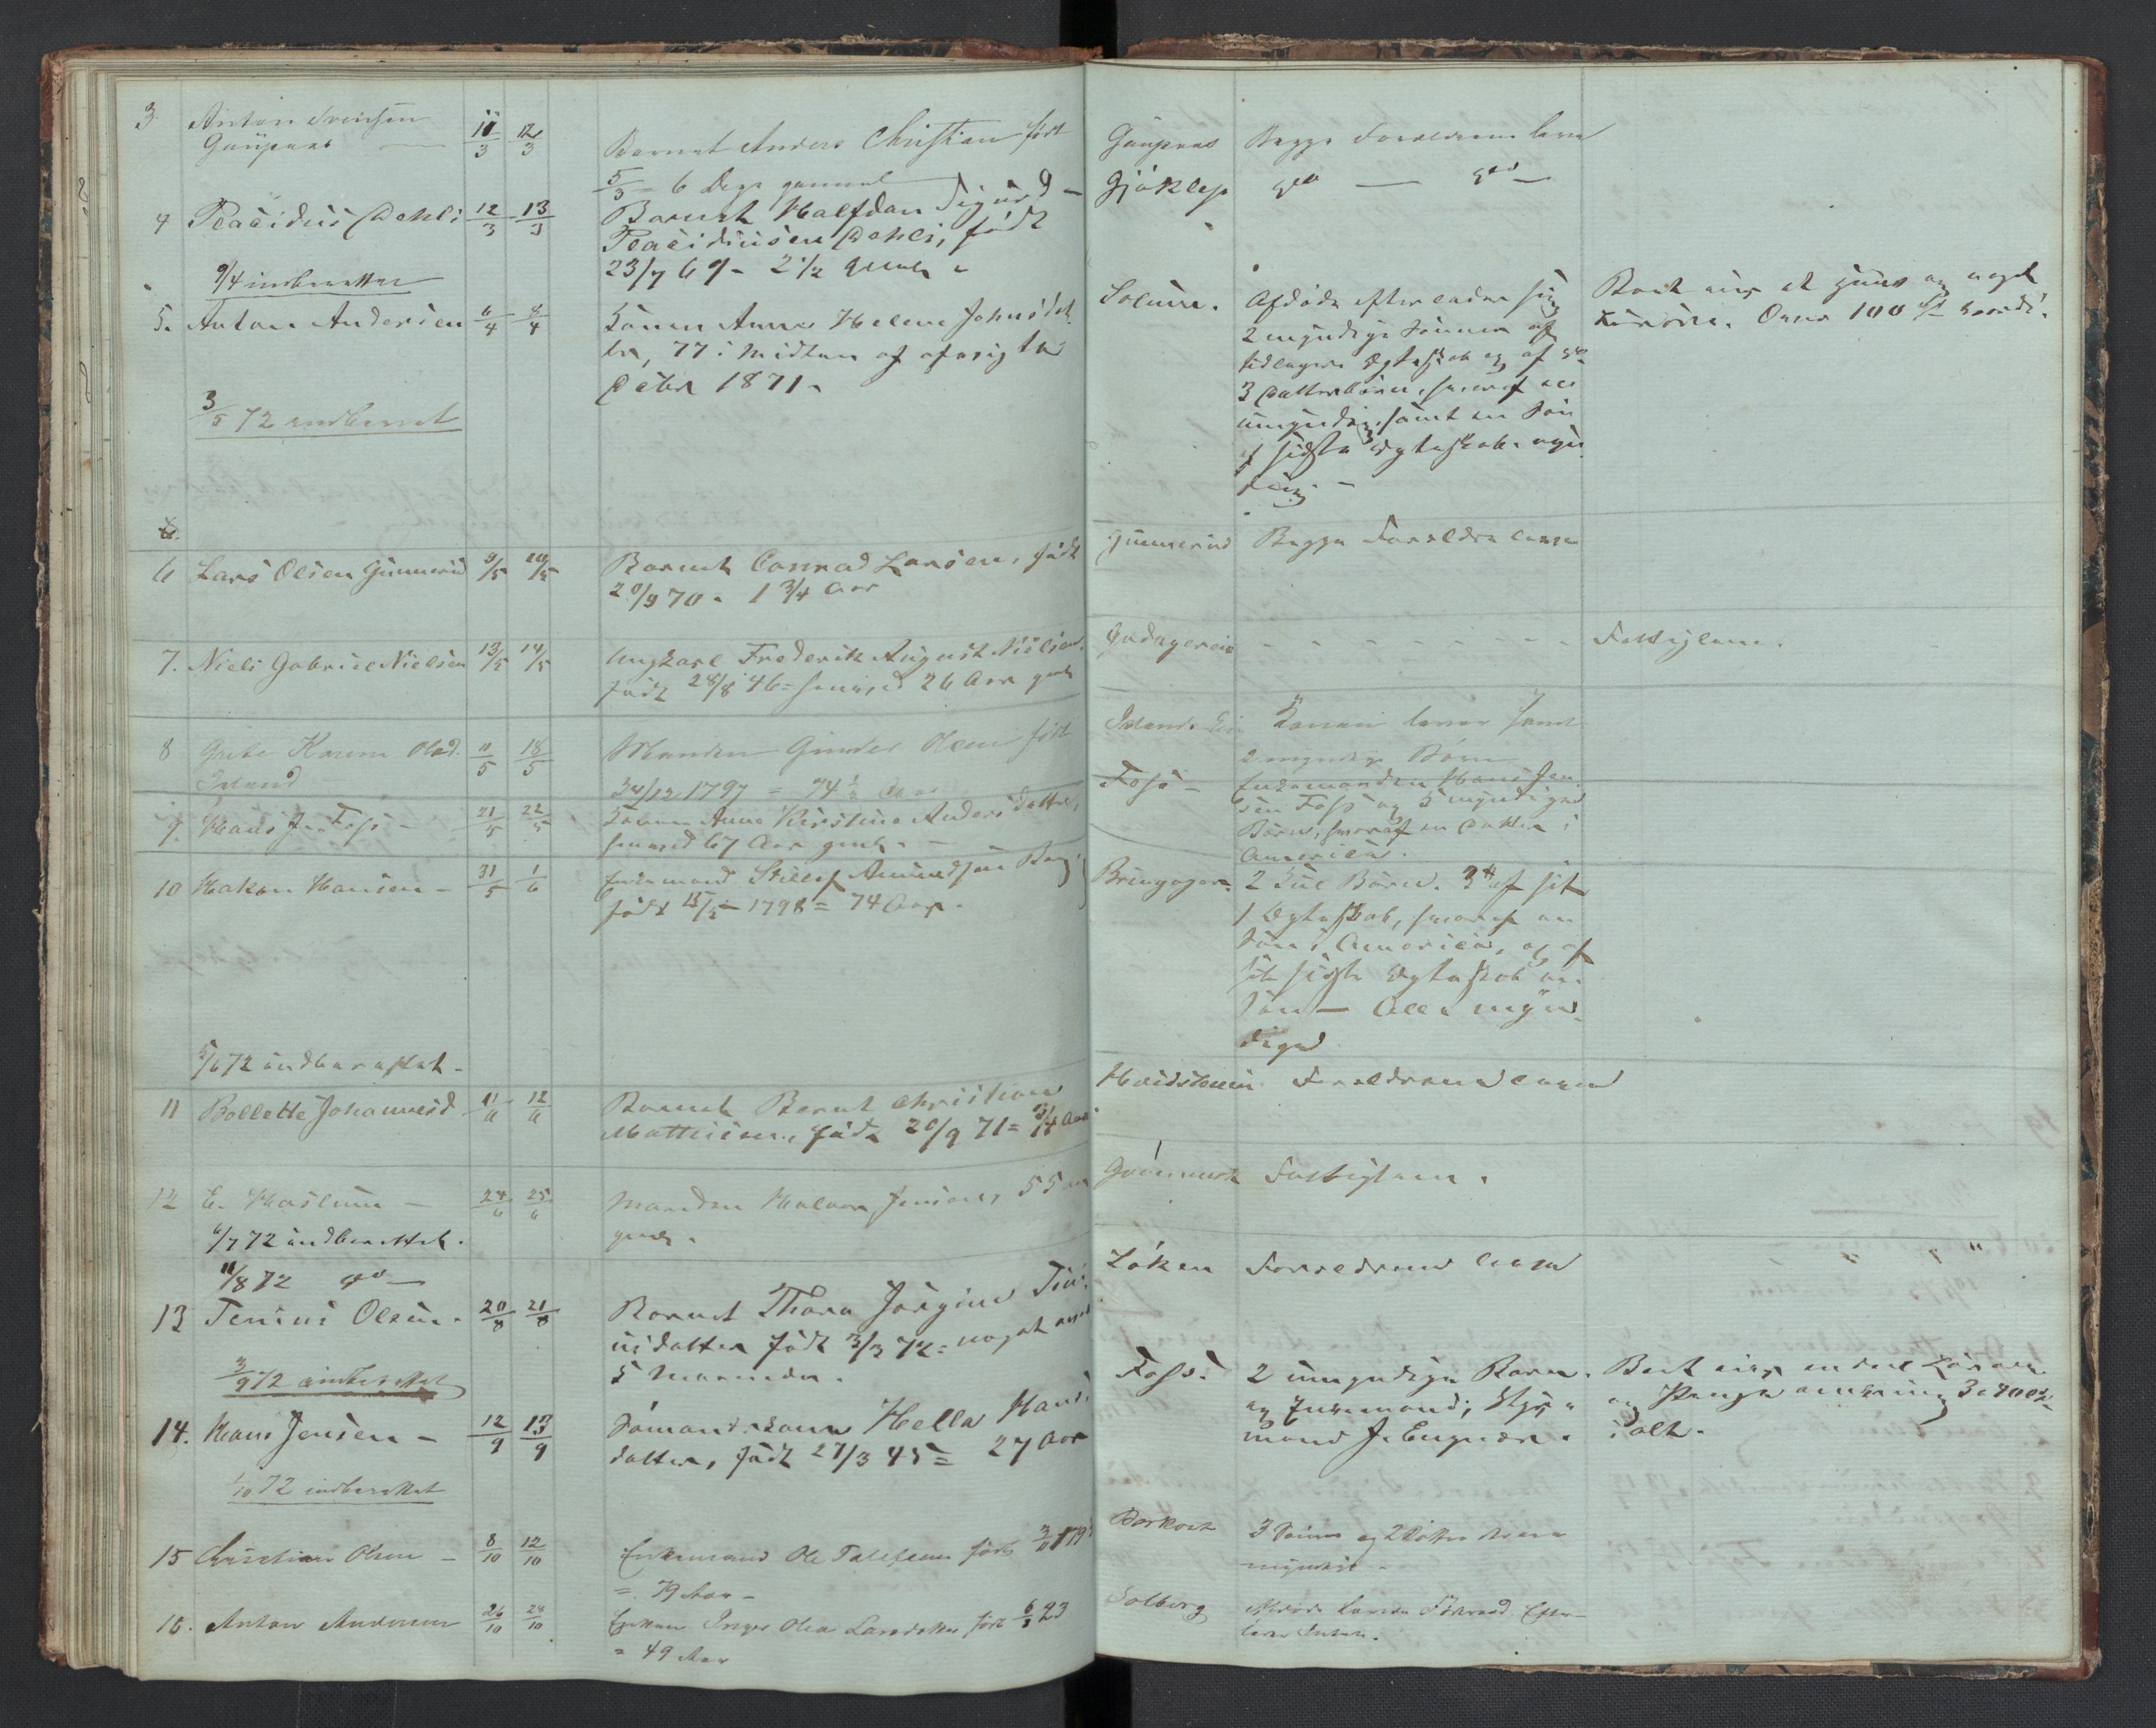 3. Anton Svensen
Gaupaas
11/3 12/3
Barnet Anders Christian født
5/3 = 6 Dage gammel
Gaupaas
Begge Forældrene leve
4 Placidus Dehli
12/3 13/3
Barnet Halfdan Sigurd
Placidussen Dehli, født
23/7 69 - 2 1/2 gml
Gjøklep
do — do
9/4 indberettet
5. Anton Andersen
6/4 8/4
Konen Anne Helene Johnsdat-
ter, 77 i Midten af afvigte
Octbr 1871.
Solum.
Afdøde efterlader sig
2 myndige Sønner af
tidligere Ægteskab og af do
3 Døttrebørn, hvoraf
umyndig, samt en Søn
af sidste Ægteskab myn
dig.
Boet eier et Huus og noget
Løsøre. Omtr 100 Spd
3/5 72 indberet
6 Lars Olsen Gunnerud
9/5 10/5
Barnet Conrad Larsen, født
20/9 70. 1 3/4 Aar
Gunnerud
Begge Forældre leve
7. Niels Gabriel Nielsen
13/5 14/5
Ungkarl Frederik August Nielsen,
født 28/8 46 = henved 26 Aar gml
Fattiglem.
8 Grete Karine Olsd.
11/5 18/5
Manden Gunder Olsen født
/12 1797 = 74 1/2 Aar
Konen lever samt
2 myndige Børn
9. Hans J. Foss -
21/5 22/5
Konen Anne Kirstine Andersdatter,
henved 67 Aar gml. -
Foss -
Enkemanden Hans Jen
sen Foss og 5 myndige
Børn, hvoraf en Datter i
America.
10 Hakon Hansen -
31/5 1/6
Enkemand Amundsen
født 15/5 1798 = 74 Aar.
2 Kuld Børn. 3 af sit
1 Ægteskab, hvoraf en
Søn i America, og af
sit sidste Ægteskab en
Søn - Alle myn-
dige
5/6 72 indberettet -
11 Bollette Johannesd
11/6 12/6
Barnet Bernt Christian
Mathisen, født 20/9 71 = 3/4 Aar
Hvidsteen
Forældrene leve
12 E. Haslum -
24/6 25/6
Manden Halvor Jensen, 55 Aar
gml.
Fattiglem.
6/7 72 indberettet.
11/8 72 do —
13 Tenius Olsen.
20/8 21/8
Barnet Thora Jørgine Tin-
iusdatter født 3/3 72 = noget over
5 Maaneder.
Løken
Forældrene leve
3/9 72 indberettet
14. Hans Jensen -
12/9 13/9
Sømandskone Hella Hans-
datter, født 27/3 45 = 27 Aar
Foss.
2 umyndige Børn.
og Enkemand, Styr-
mand J. Engnæs.
Boet eier en Deel Løsøre
og Penge omkring 3 a 400 Spd
i alt.
1/10 72 indberettet
15 Christian Olsen -
8/10 12/10
Enkemand Ole Tollefsen født
= 79 Aar -
3 Sønner og 2 Døttre
myndige -
16. Anton Andersen
26/10 28/10
Enken Inger Olea Larsdatter født 6/3 23
= 49 Aar
Solberg